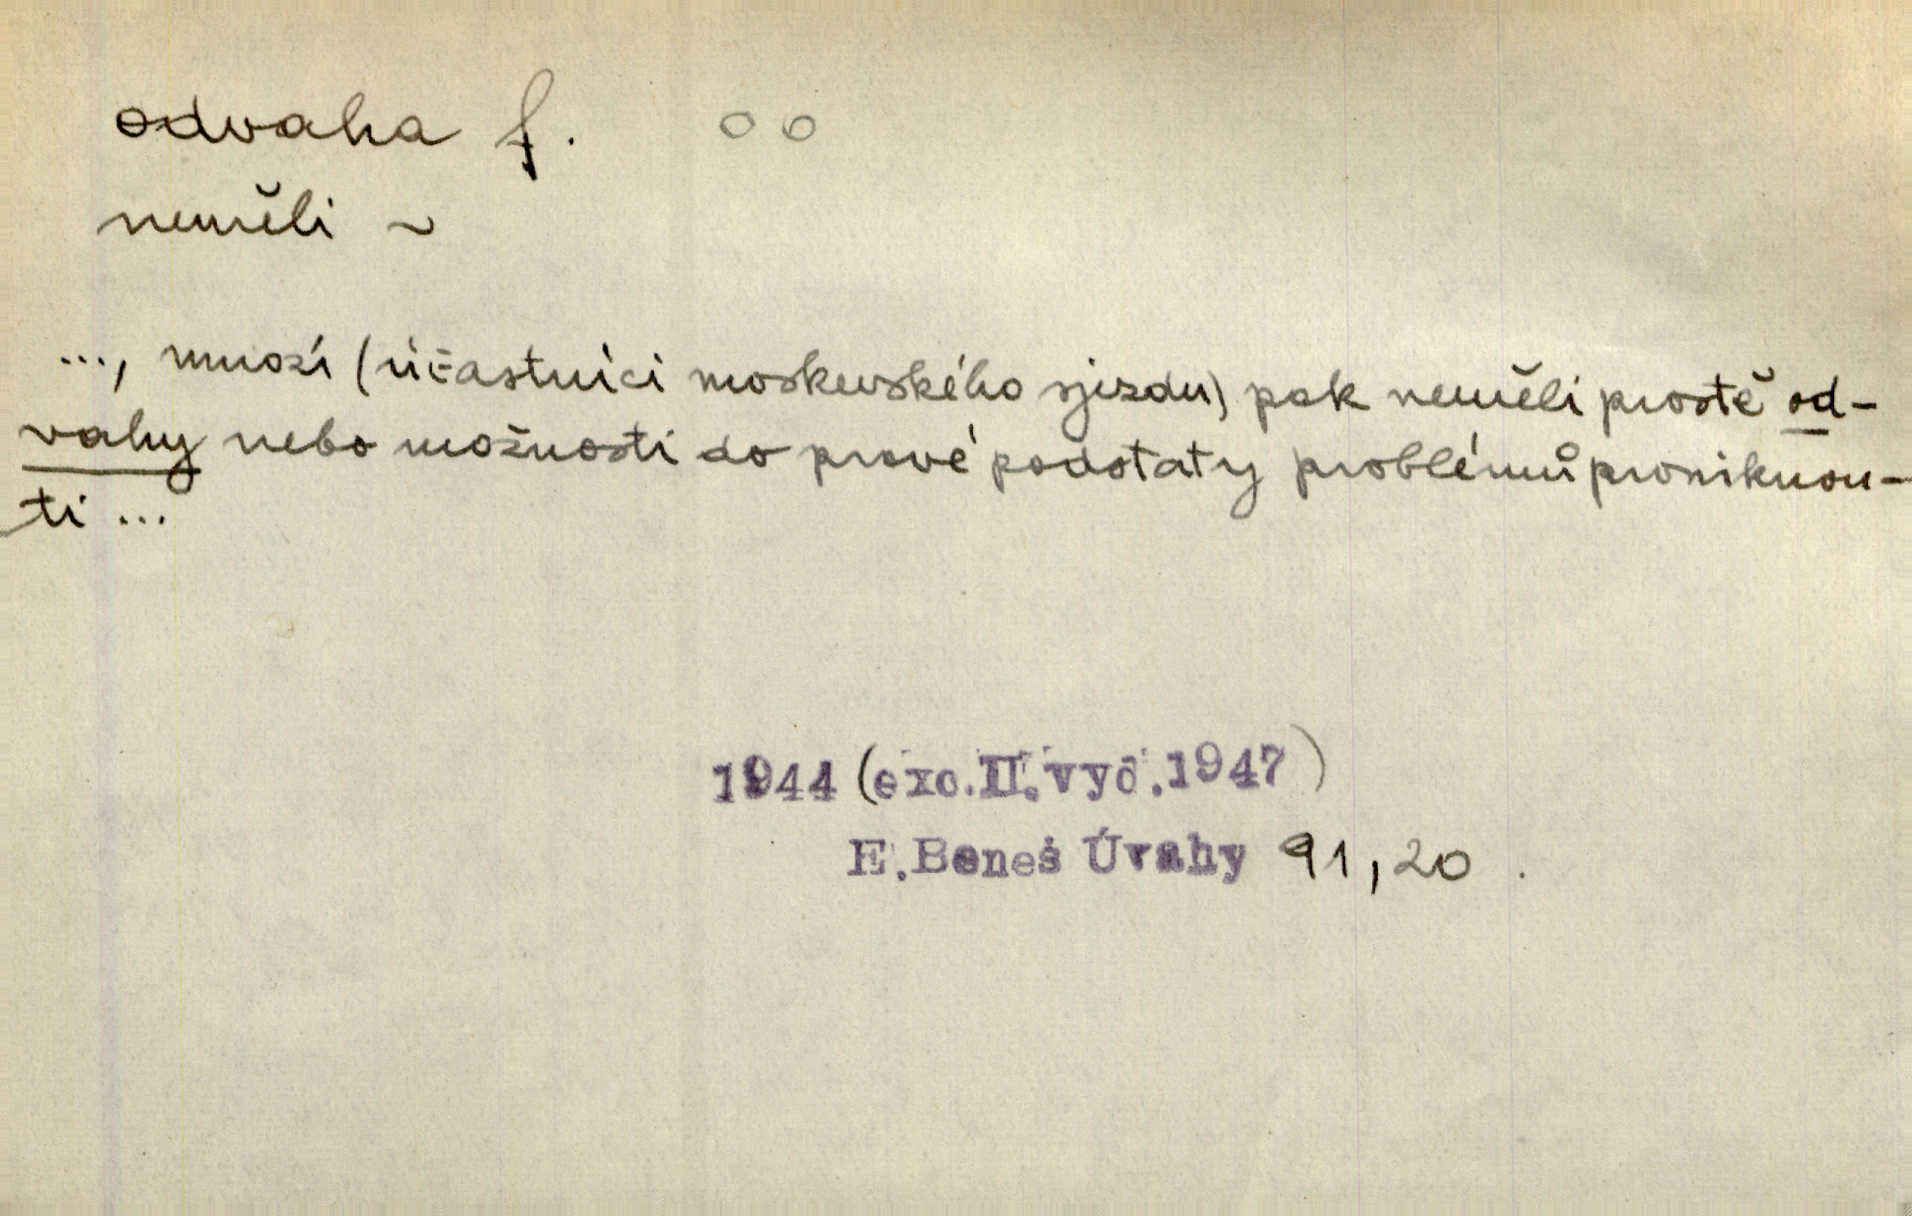 odvaha f. oo
neměli ~
..., mnozí (účastníci moskevského sjezdu) pak neměli prostě od-
vahy nebo možnosti do pravé podstaty problémů proniknou-
ti ...
1944 (exc. II. vyd. 1947)
E. Beneš Úvahy 91, 20.